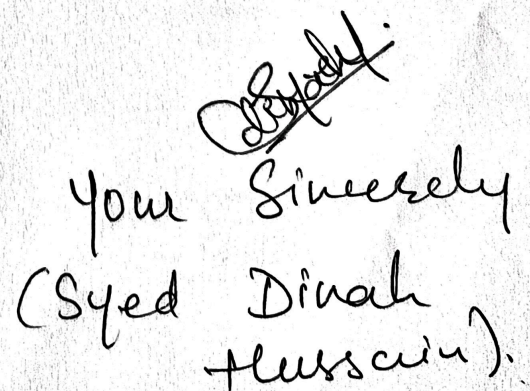 Your Sincerely
(Syed Dinah
Hussain).